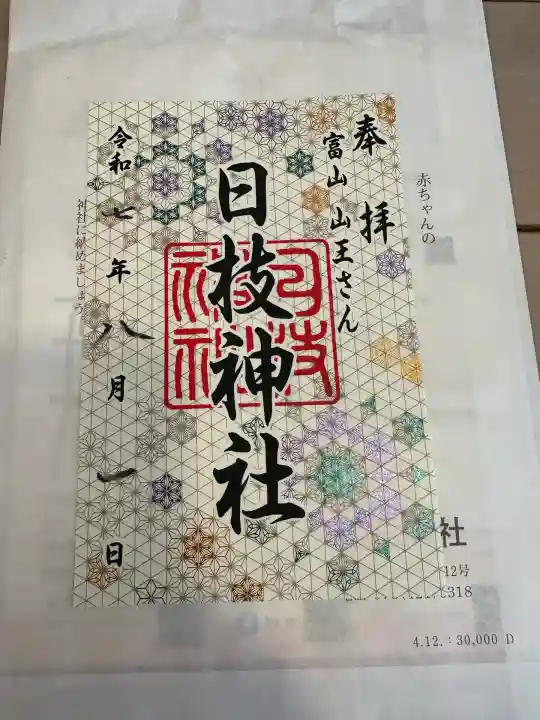 奉拝
富山 山王さん
日枝神社
日枝神社
令和七年八月一日
赤ちゃんの
神社に納めましょう。
社
12号
318
4.12.：30,000 D